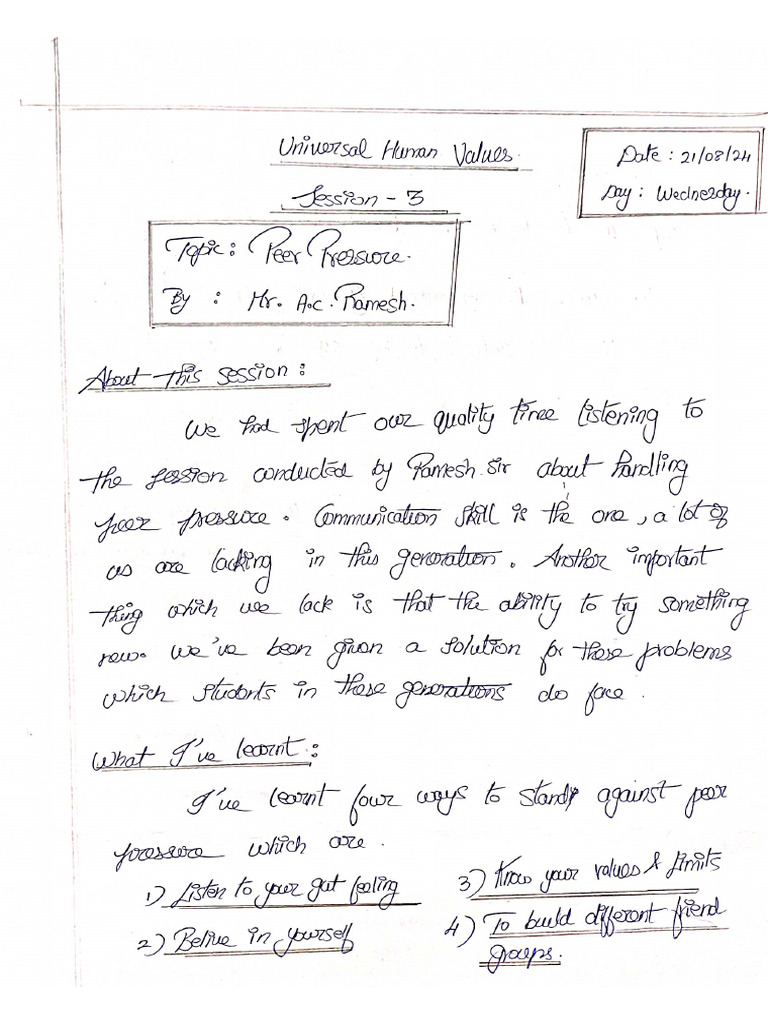 Universal Human Values.
Date : 21/08/24
Day : Wednesday.
Session - 3
Topic : Peer Pressure.
By : Mr. A.C. Ramesh.
About This session :
We had spent our quality time listening to
the session conducted by Ramesh sir about handling
peer pressure. Communication skill is the one, a lot of
us are lacking in this generation. Another important
thing which we lack is that the ability to try something
new. We've been given a solution for these problems
which students in these generations do face.
What I've learnt :
I've learnt four ways to stand against peer
pressure which are.
1) Listen to your gut feeling
2) Belive in yourself
3) Know your values & limits
4) To build different friend
groups.